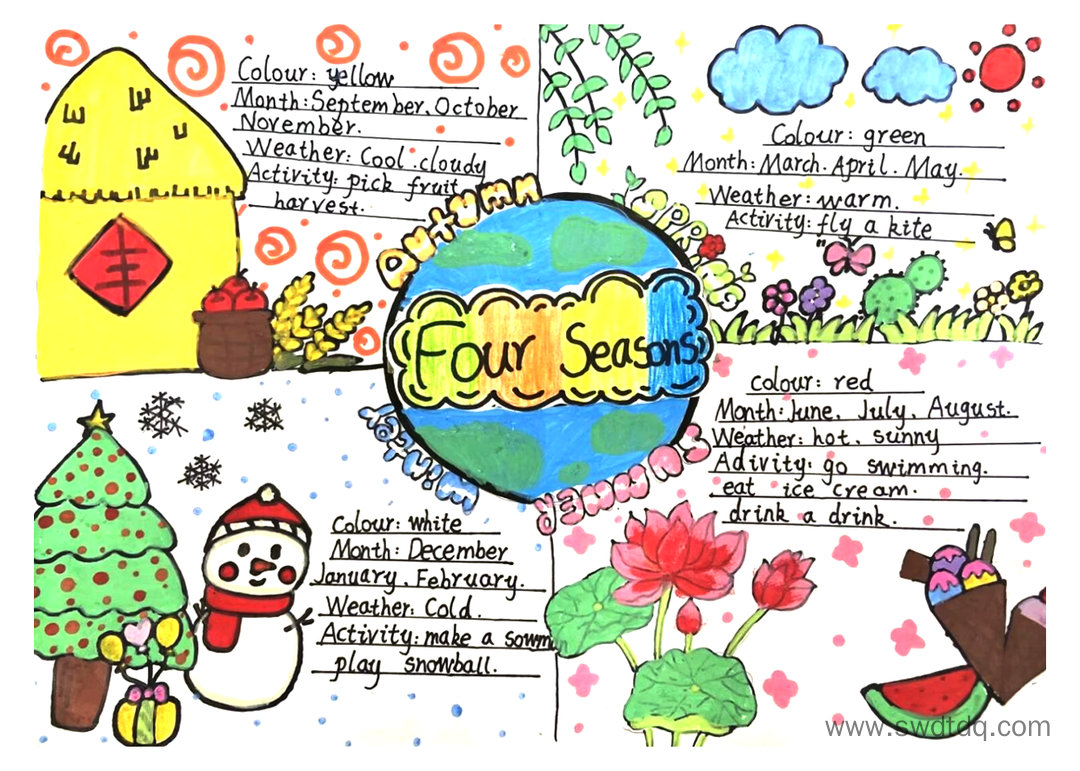 Colour: yellow
Month: September. October
November.
Weather: Cool. cloudy
Activity: pick fruit
harvest.
AUTUMN
丰
Colour: green
Month: March. April. May.
Weather: warm.
Activity: fly a kite
SPRING
Four Seasons
Colour: white
Month: December
January. February.
Weather: Cold.
Activity: make a sowm
play snowball.
WiNteR
Colour: red
Month: June. July. August.
Weather: hot. sunny
Adivity: go swimming.
eat ice cream.
drink a drink.
SUMMER
www.swdtdq.com